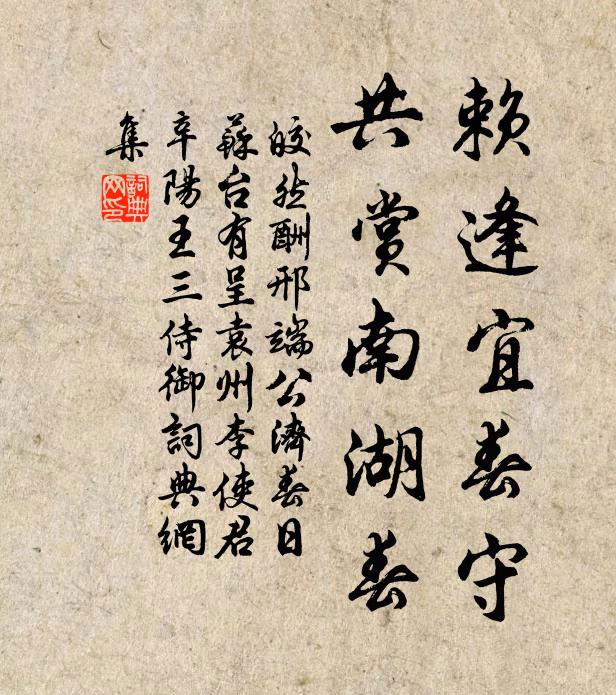 赖逢宜春守
共赏南湖春
皎然酬邢端公濟春日
蘇台有呈袁州李使君
辛陽王三侍御詞典網
集
詞典
网印